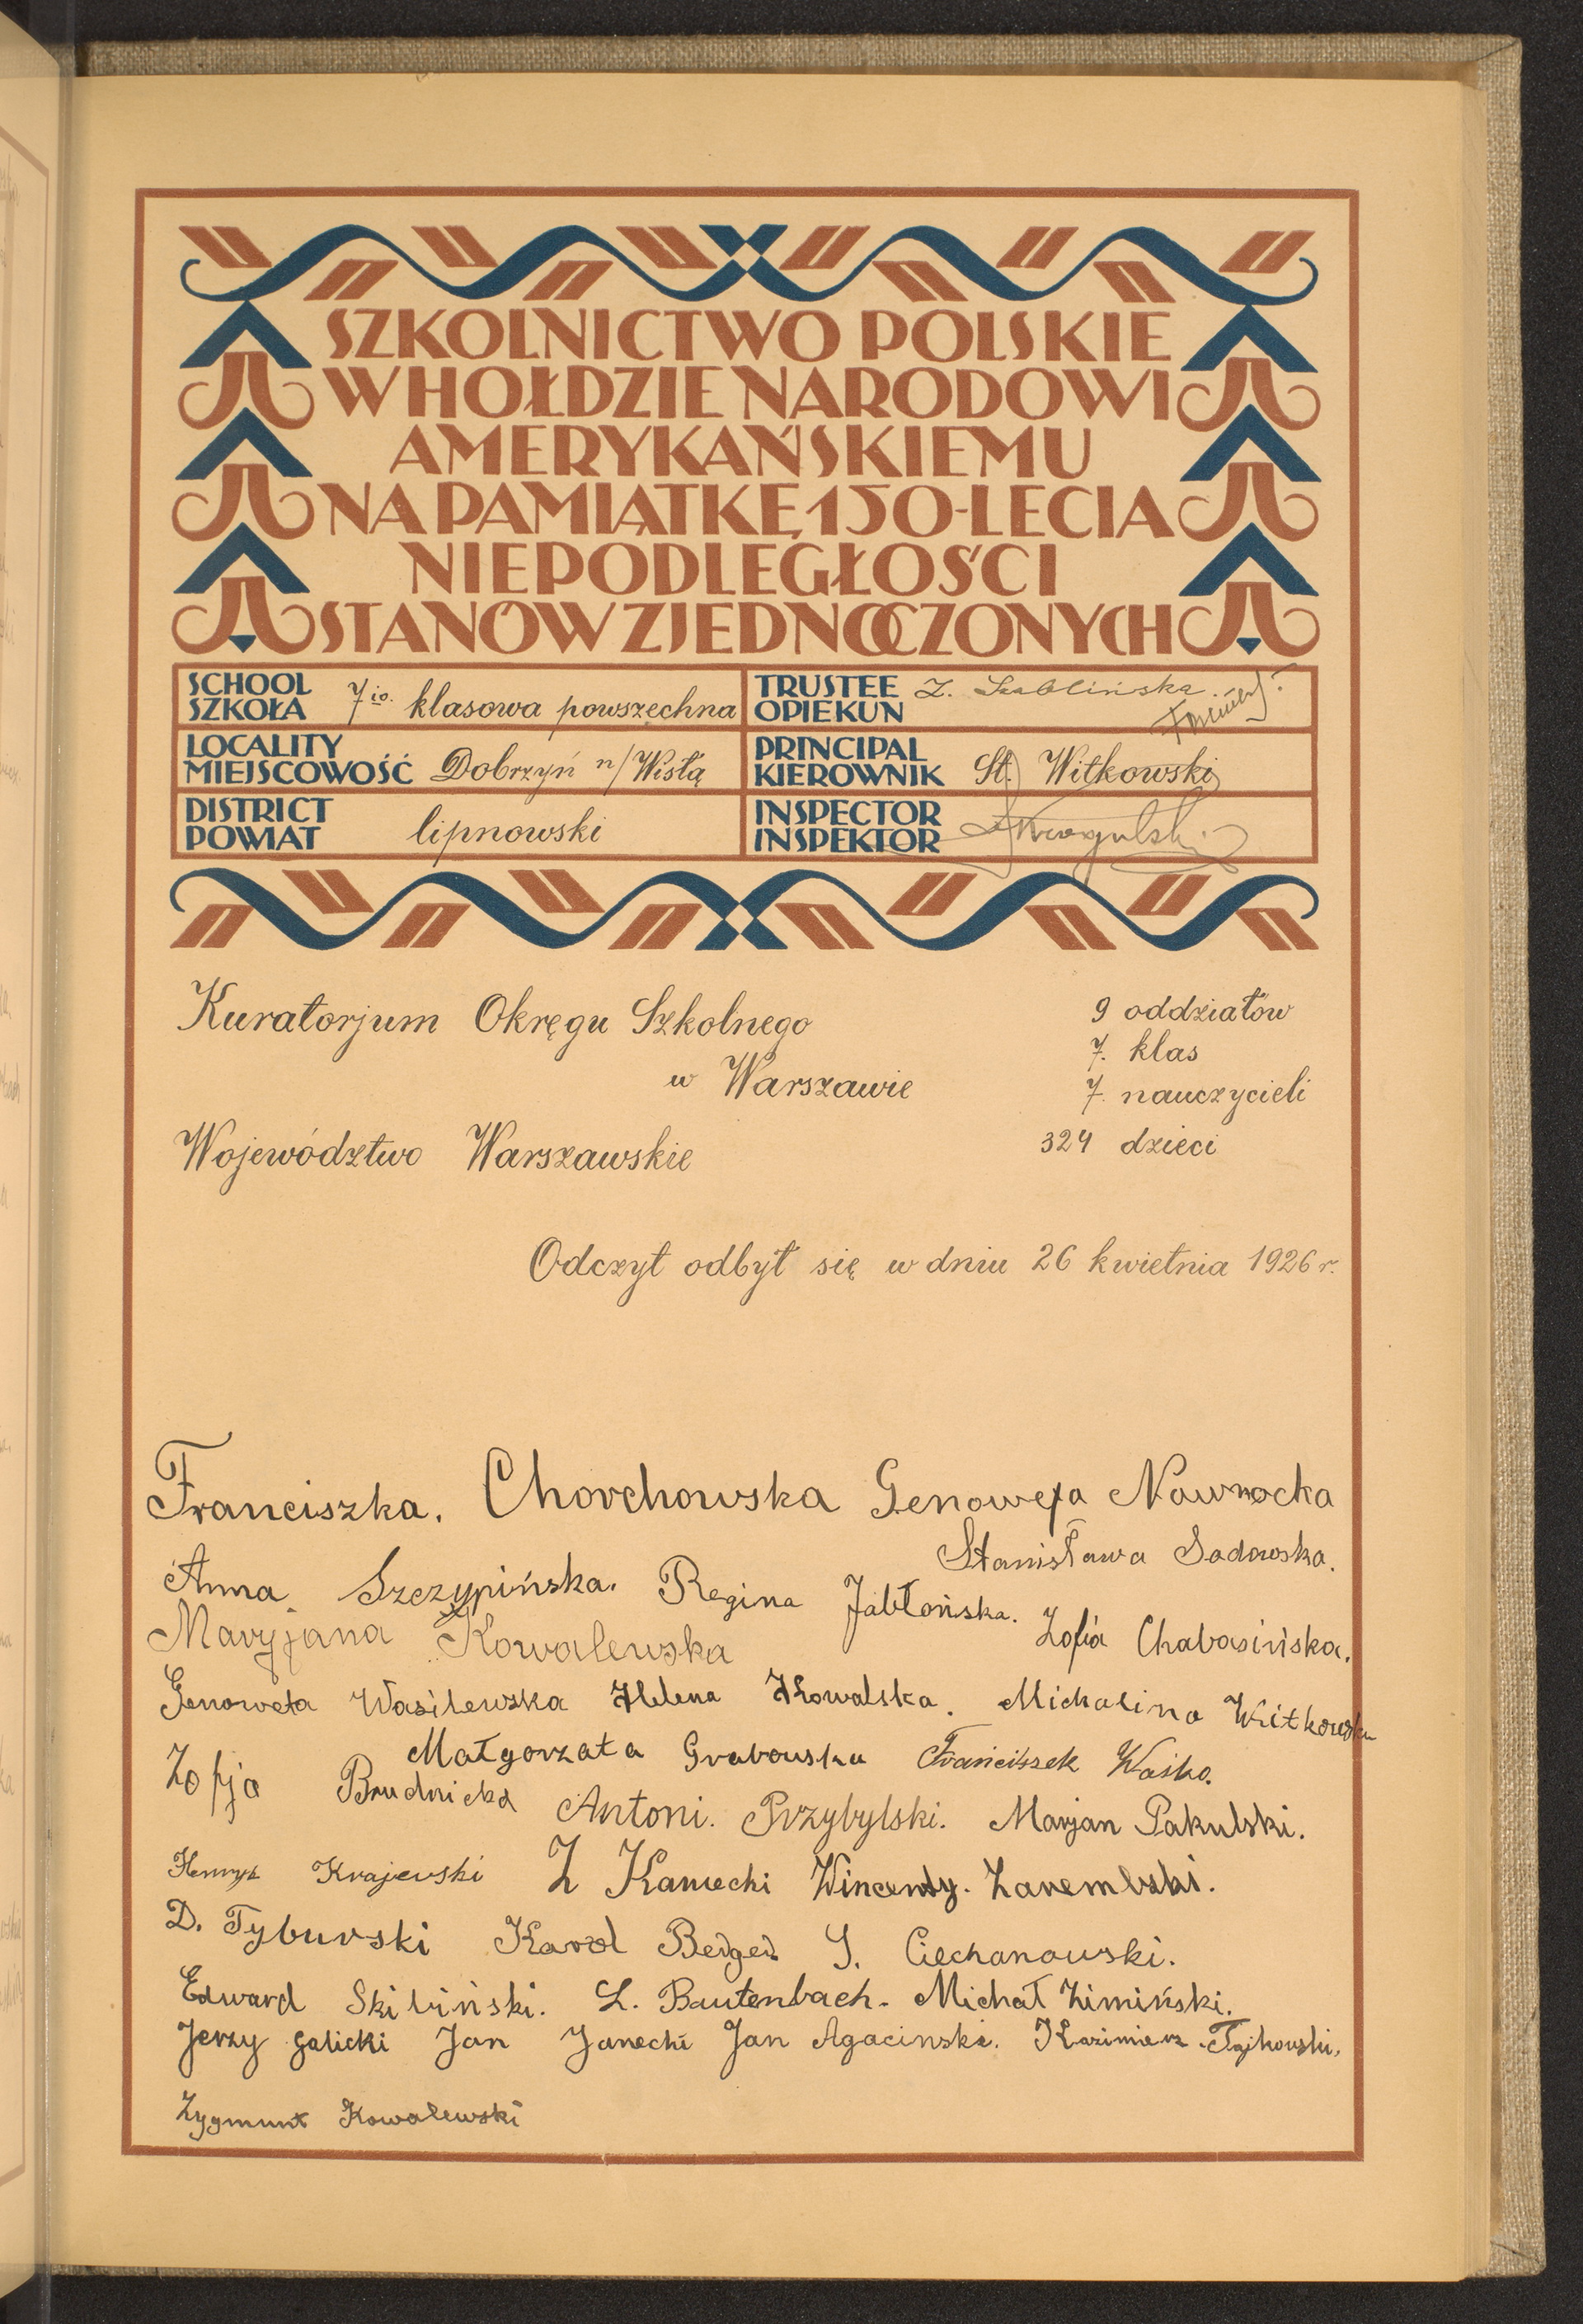 SZKOLNICTWO POLSKIE
W HOŁDZIE NARODOWI
AMERYKAŃSKIEMU
NA PAMIĄTKĘ 150-LECIA
NIEPODLEGŁOŚCI
STANÓW ZJEDNOCZONYCH
SCHOOL
SZKOŁA 7io. klasowa powszechna
TRUSTEE
OPIEKUN Z. Szablińska.
LOCALITY
MIEJSCOWOŚĆ Dobrzyń n/Wisłą
PRINCIPAL
KIEROWNIK St. Witkowski
DISTRICT
POWIAT lipnowski
INSPECTOR
INSPEKTOR
Kuratorjum Okręgu Szkolnego
w Warszawie
Województwo Warszawskie
9 oddziałów
7. klas
7. nauczycieli
324 dzieci
Odczyt odbył się w dniu 26 kwietnia 1926 r.
Franciszka. Chorchowska Genowefa Nawrocka
Stanisława Sadowska.
Anna Szczypińska. Regina Jabłońska.
Maryjana Kowalewska Zofia Chabasińska.
Genowefa Wasilewska Helena Kowalska. Michalina Witkowska
Małgorzata Grabowska Franciszek Waśko.
Zofja Brudnicka Antoni. Przybylski. Marjan Pakulski.
Henryk Krajewski Z Kaniecki Wincenty. Zarembski.
D. Tyburski Karol Berger S. Ciechanowski.
Edward Skibiński. L. Bautenbach. Michał Zimiński.
Jerzy Galicki Jan Janecki Jan Agacinski. Kazimierz Fajkowski.
Zygmunt Kowalewski